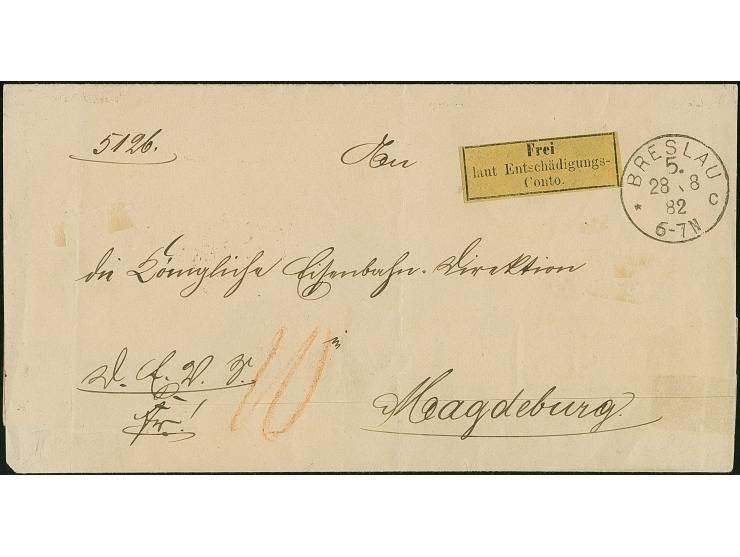 5126.
An
Frei
laut Entschädigungs-
Conto.
BRESLAU
5.
28 8
82
6-7N
* C
die Königliche Eisenbahn-Direktion
in
10
D. E. V. S.
Fr.!
Magdeburg.